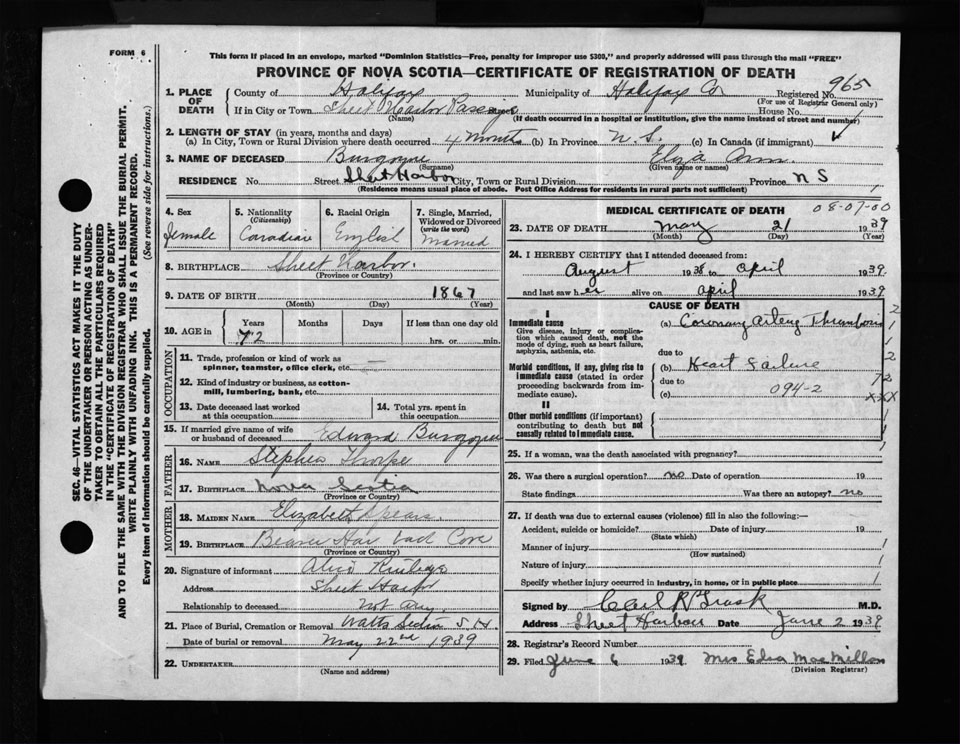 FORM 6
This form if placed in an envelope, marked "Dominion Statistics—Free, penalty for improper use $300," and properly addressed will pass through the mail "FREE"
PROVINCE OF NOVA SCOTIA—CERTIFICATE OF REGISTRATION OF DEATH
SEC. 46—VITAL STATISTICS ACT MAKES IT THE DUTY
OF THE UNDERTAKER OR PERSON ACTING AS UNDER-
TAKER TO OBTAIN ALL THE PARTICULARS REQUIRED
IN THE "CERTIFICATE OF REGISTRATION OF DEATH"
AND TO FILE THE SAME WITH THE DIVISION REGISTRAR WHO SHALL ISSUE THE BURIAL PERMIT.
WRITE PLAINLY WITH UNFADING INK. THIS IS A PERMANENT RECORD.
Every item of information should be carefully supplied. (See reverse side for instructions.)
1. PLACE OF DEATH
County of Halifax Municipality of Halifax Co Registered No. 965
(For use of Registrar General only)
If in City or Town Sheet Harbor Passage House No.
(Name) (If death occurred in a hospital or institution, give the name instead of street and number)
2. LENGTH OF STAY (in years, months and days)
(a) In City, Town or Rural Division where death occurred 4 months (b) In Province N. S. (c) In Canada (if immigrant)
3. NAME OF DECEASED Burgoyne Eliza Ann.
(Surname) (Given name or names)
RESIDENCE No. Street Sheet Harbor City, Town or Rural Division Province N S
(Residence means usual place of abode. Post Office Address for residents in rural parts not sufficient)
4. Sex
Female
5. Nationality
(Citizenship)
Canadian
6. Racial Origin
English
7. Single, Married,
Widowed or Divorced
(write the word)
Married
8. BIRTHPLACE Sheet Harbor.
(Province or Country)
9. DATE OF BIRTH 1867
(Month) (Day) (Year)
10. AGE in Years Months Days If less than one day old
72 hrs. or min.
OCCUPATION
11. Trade, profession or kind of work as
spinner, teamster, office clerk, etc. —
12. Kind of industry or business, as cotton-
mill, lumbering, bank, etc.
13. Date deceased last worked
at this occupation
14. Total yrs. spent in
this occupation
15. If married give name of wife
or husband of deceased Edward Burgoyne
FATHER
16. NAME Stephen Thorpe
17. BIRTHPLACE Nova Scotia
(Province or Country)
MOTHER
18. MAIDEN NAME Elizabeth Spears
19. BIRTHPLACE Beaver Har Cove
(Province or Country)
20. Signature of informant
Address Sheet Harbor
Relationship to deceased Not any
21. Place of Burial, Cremation or Removal Watts Section S. H.
Date of burial or removal May 22nd 1939
22. UNDERTAKER
(Name and address)
MEDICAL CERTIFICATE OF DEATH 08-07-00
23. DATE OF DEATH May 21 1939
(Month) (Day) (Year)
24. I HEREBY CERTIFY that I attended deceased from:
August 1938 to April 1939.
and last saw her alive on April 1939
CAUSE OF DEATH
I
Immediate cause
Give disease, injury or complica-
tion which caused death, not the
mode of dying, such as heart failure,
asphyxia, asthenia, etc.
(a) Coronary Artery Thrombosis
due to
Morbid conditions, if any, giving rise to
immediate cause (stated in order
proceeding backwards from im-
mediate cause).
(b) Heart Failure
due to 094-2
(c)
2
1
1
2
72
XXX
II
Other morbid conditions (if important)
contributing to death but not
causally related to immediate cause.
25. If a woman, was the death associated with pregnancy?
26. Was there a surgical operation? no Date of operation 19
State findings Was there an autopsy? no
27. If death was due to external causes (violence) fill in also the following:—
Accident, suicide or homicide? Date of injury 19
(State which)
Manner of injury
(How sustained)
Nature of injury
Specify whether injury occurred in industry, in home, or in public place
Signed by Carl R Trask M.D.
Address Sheet Harbour Date June 2 1939
28. Registrar's Record Number
29. Filed June 6 1939 Mrs Edna MacMillan
(Division Registrar)